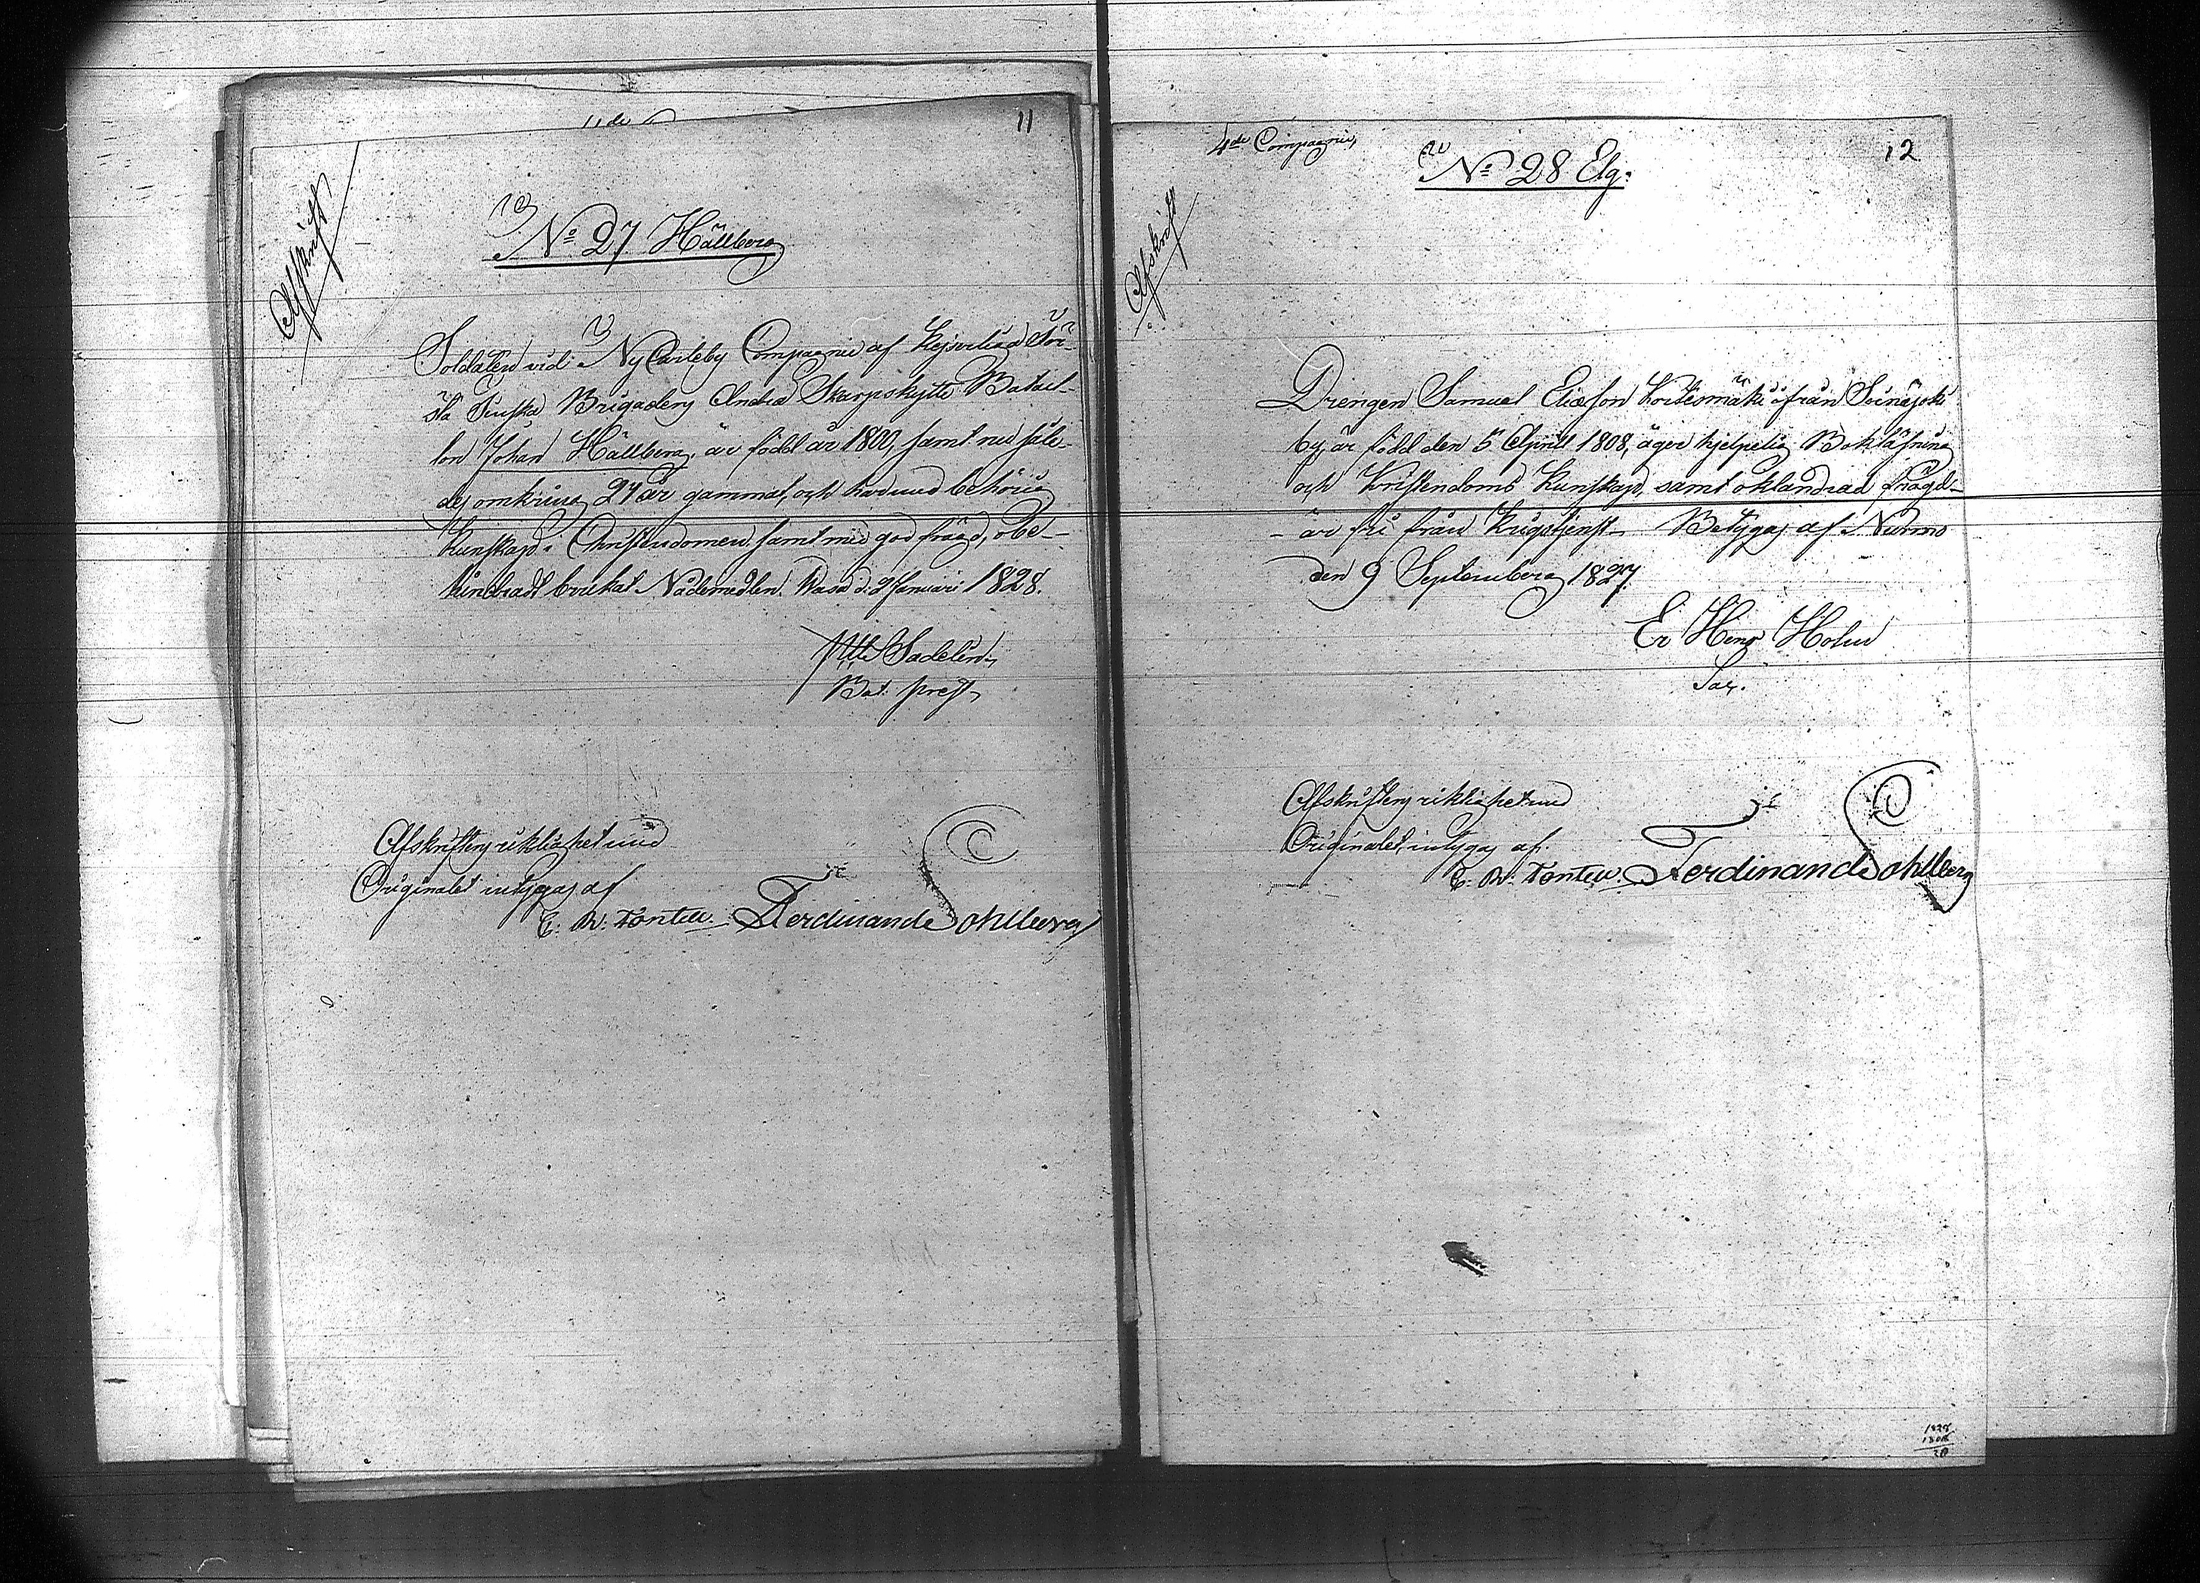 11
Afskrift
No 27 Hällberg
Soldaten vid NyCarleby Compagnie af Kejserliga För-
sta Finska Brigadens Andra Skarpskytte Batail-
lon Johan Hällberg, är född år 1800, samt nu såle-
des omkring 27 år gammal, och har med behörig
kunskap i Christendomen samt med god frägd, obe-
hindradt brukat Nådemedlen. Wasa d. 2 Januari 1828.
Sadelin
Bat. prest
Afskriftens riktighet med
Originalet intygas af
Ferdinand Sohlberg
4de Compagnie,
12
No 28 Elg.
Afskrift
Drengen Samuel Eliæson ifrån Seinäjoki
by, är född den 5 April 1808, äger hjelpelig Bokläsning
och Kristendoms Kunskap, samt oklandrad frägd
är fri från Krigstjenst. Betygas af Nurmo
den 9 September 1827.
Er Henr Holm
Sac.
Afskriftens riktighet med
Originalet, intygas af
Ferdinand Sohlberg
1828
1808
20